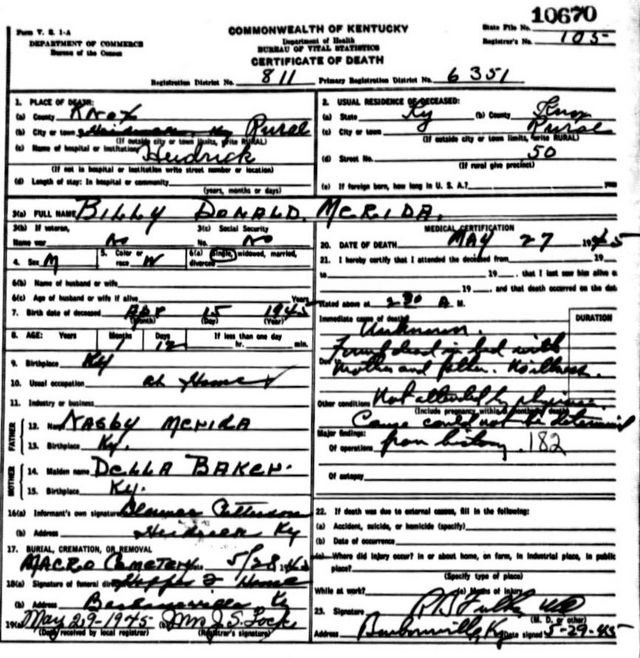 10670
Form V. S. 1-A
COMMONWEALTH OF KENTUCKY
State File No.
DEPARTMENT OF COMMERCE
Department of Health
Registrar's No. 105
Bureau of the Census
BUREAU OF VITAL STATISTICS
CERTIFICATE OF DEATH
Registration District No. 811 Primary Registration District No. 6351
1. PLACE OF DEATH:
(a) County Knox
(b) City or town Rural
(If outside city or town limits, write RURAL)
(c) Name of hospital or institution Heidrick
(If not in hospital or institution write street number or location)
(d) Length of stay: In hospital or community
(years, months or days)
2. USUAL RESIDENCE OF DECEASED:
(a) State Ky (b) County Knox
(c) City or town Rural
(If outside city or town limits, write RURAL)
(d) Street No. 50
(If rural give precinct)
(e) If foreign born, how long in U. S. A.? years
3(a) FULL NAME BILLY DONALD MCRIDA.
3(b) If veteran,
3(c) Social Security
Name war No
No. No
4. Sex M
5. Color or race W
6(a) Single, widowed, married, divorced
6(b) Name of husband or wife
6(c) Age of husband or wife if alive Years
7. Birth date of deceased APR 15 1945
(Month) (Day) (Year)
8. AGE: Years Months Days If less than one day
12 hr. min.
9. Birthplace Ky
10. Usual occupation at Home
11. Industry or business
FATHER
12. Name NASBY MCRIDA
13. Birthplace Ky.
MOTHER
14. Maiden name DELLA BAKER.
15. Birthplace Ky.
16(a) Informant's own signature
(b) Address Heidrick Ky
17. BURIAL, CREMATION, OR REMOVAL
MACRO CEMETERY 5/28 1945
18(a) Signature of funeral director Hopper F Home
(b) Address Barbourville Ky
19(a) May 29-1945 Mrs J. S. Lock
(Date received by local registrar) (Registrar's signature)
MEDICAL CERTIFICATION
20. DATE OF DEATH MAY 27 1945
21. I hereby certify that I attended the deceased from 19
to 19 , that I last saw him alive on
19 , and that death occurred on the date
stated above at A M.
Immediate cause of death
DURATION
Unknown.
Found dead in bed with
Due mother and father.
Other conditions Not attended by physician.
(Include pregnancy within 3 months of death)
Cause could not be determined
Major findings:
from history. 182
Of operations
Of autopsy
22. If death was due to external causes, fill in the following:
(a) Accident, suicide, or homicide (specify)
(b) Date of occurrence
(c) Where did injury occur? in or about home, on farm, in industrial place, in public
place?
(Specify type of place)
While at work? (e) Means of injury
23. Signature
(M. D. or other)
Address Barbourville, Ky Date signed 5-29-45